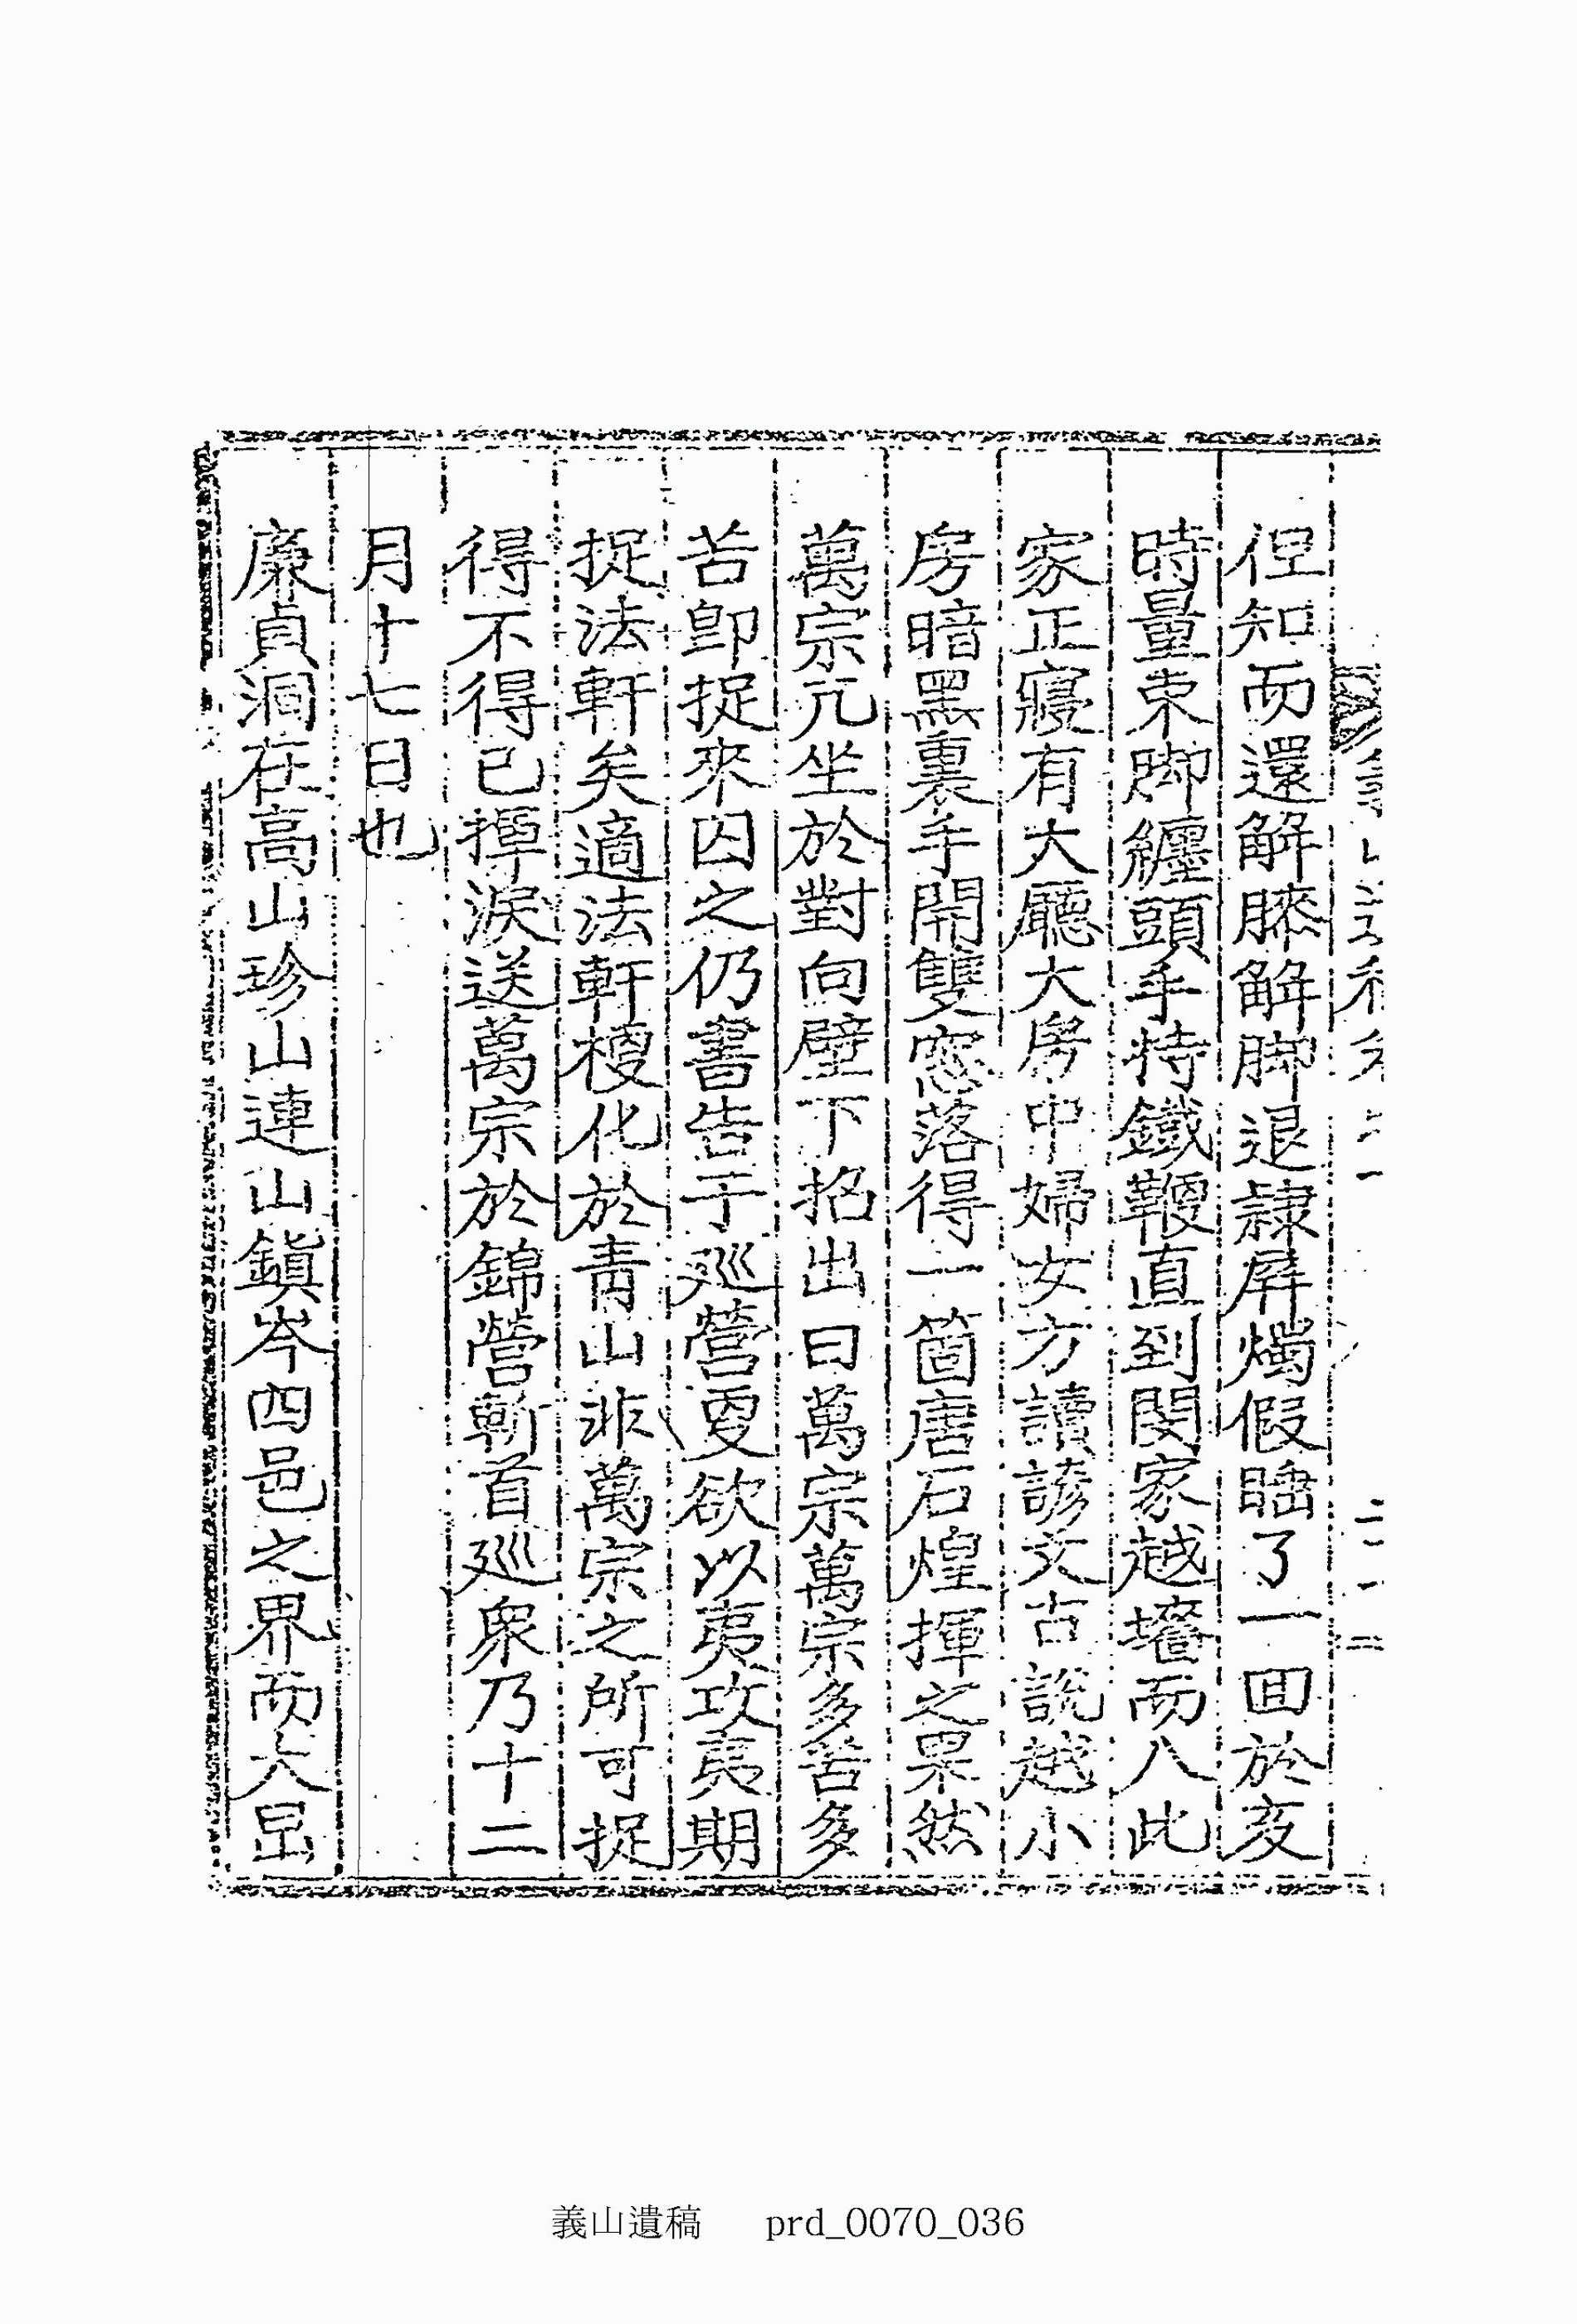 但知而還解膝解脚退隷屛燭假睡了一回於亥
時量束脚纏頭手持鐵鞭直到閔家越墻而入此
家正寢有大廳大房中婦女方讀諺文古說越小
房暗黑裏手開雙窓落得一箇唐石煌揮之果然
萬宗兀坐於對向壁下招出曰萬宗萬宗多苦多
苦卽捉來囚之仍書告于廵營更欲以夷攻夷期
捉法軒矣適法軒梗化於靑山非萬宗之所可捉
得不得已揮淚送萬宗於錦營斬首廵衆乃十二
月十七日也
廉貞洞在高山珍山連山鎭岑四邑之界而大昆
義山遺稿 prd_0070_036